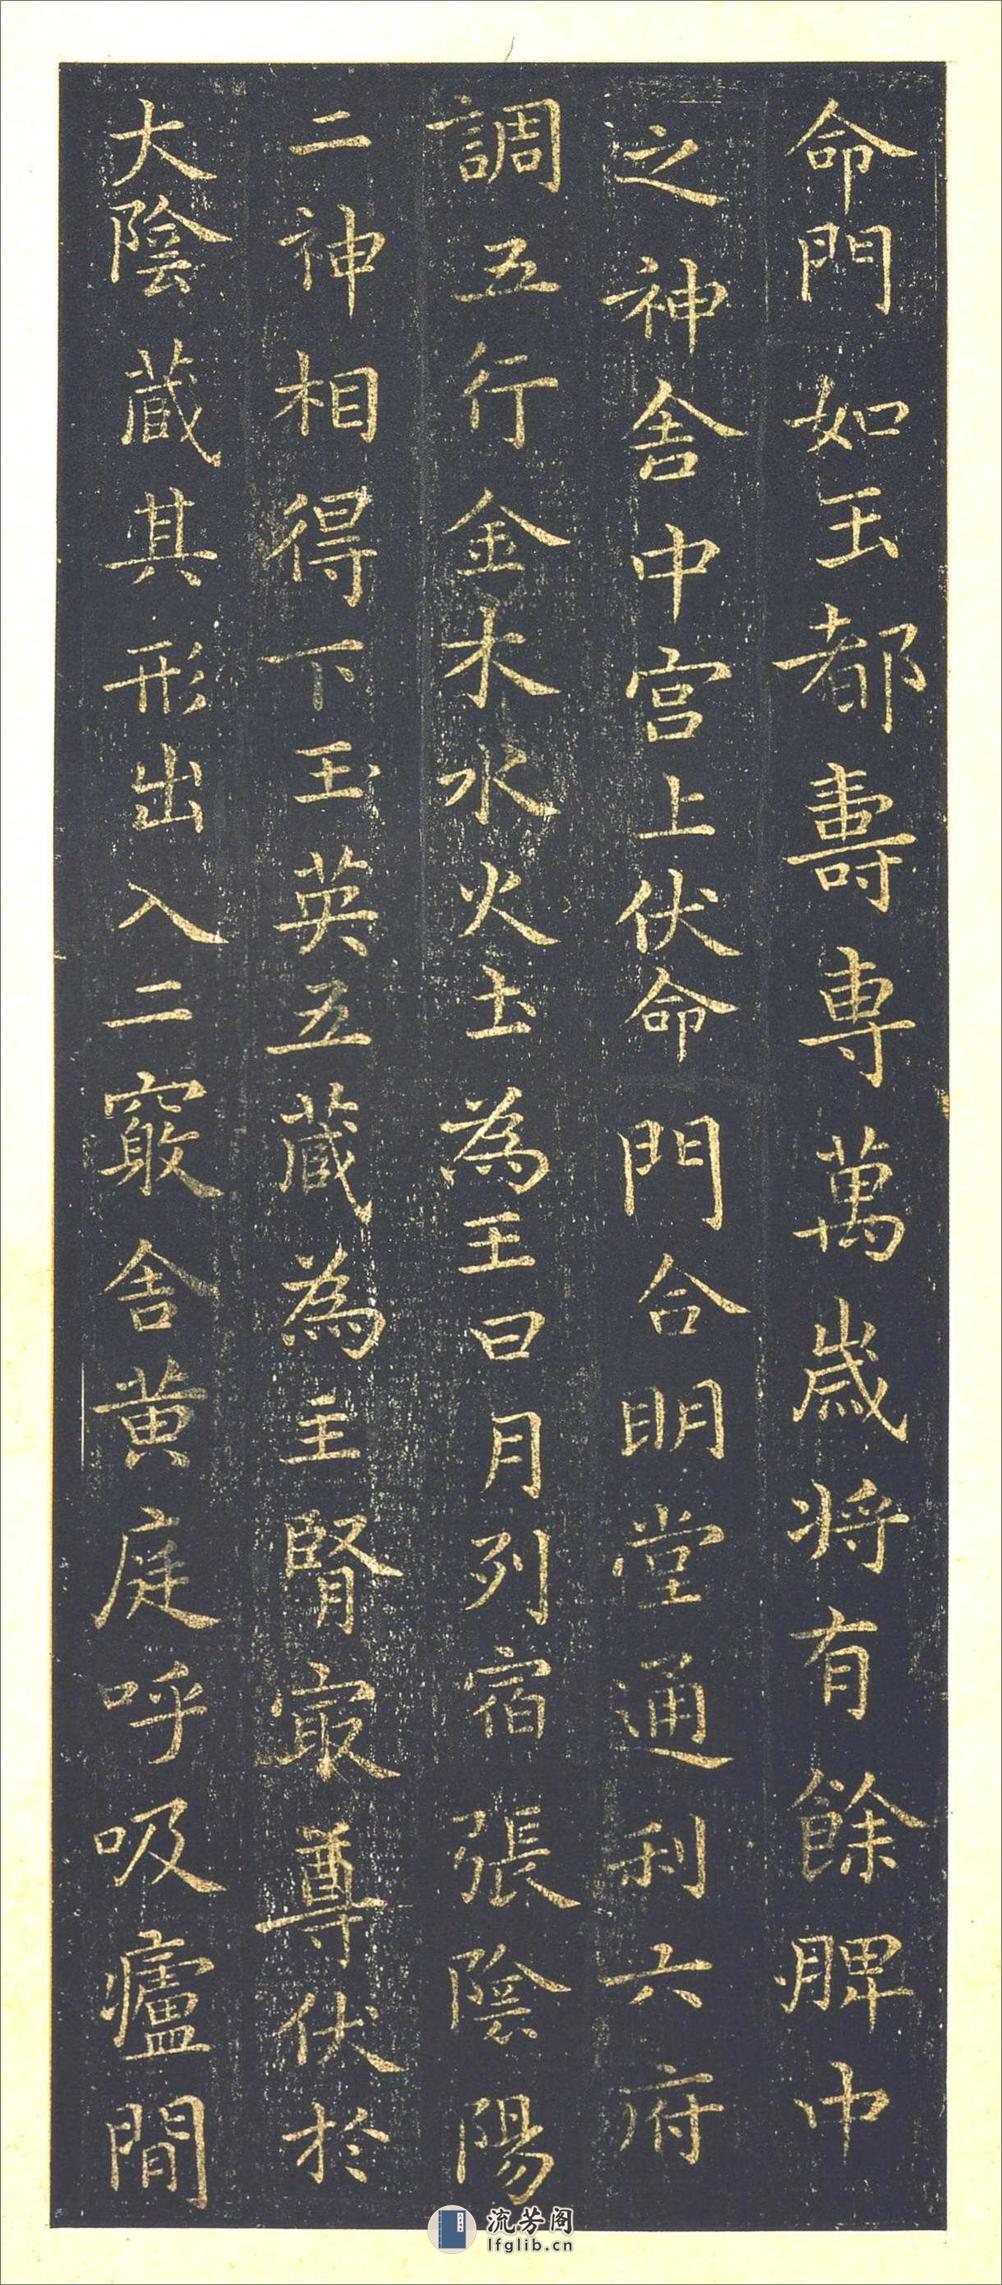 命門如玉都壽專萬歲将有餘脾中
之神舍中宫上伏命門合明堂通利六府
調五行金木水火土為王日月列宿張陰陽
二神相得下玉英五蔵為主腎㝡尊伏於
大陰蔵其形出入二竅舍黄庭呼吸廬間
流芳阁
lfglib.cn